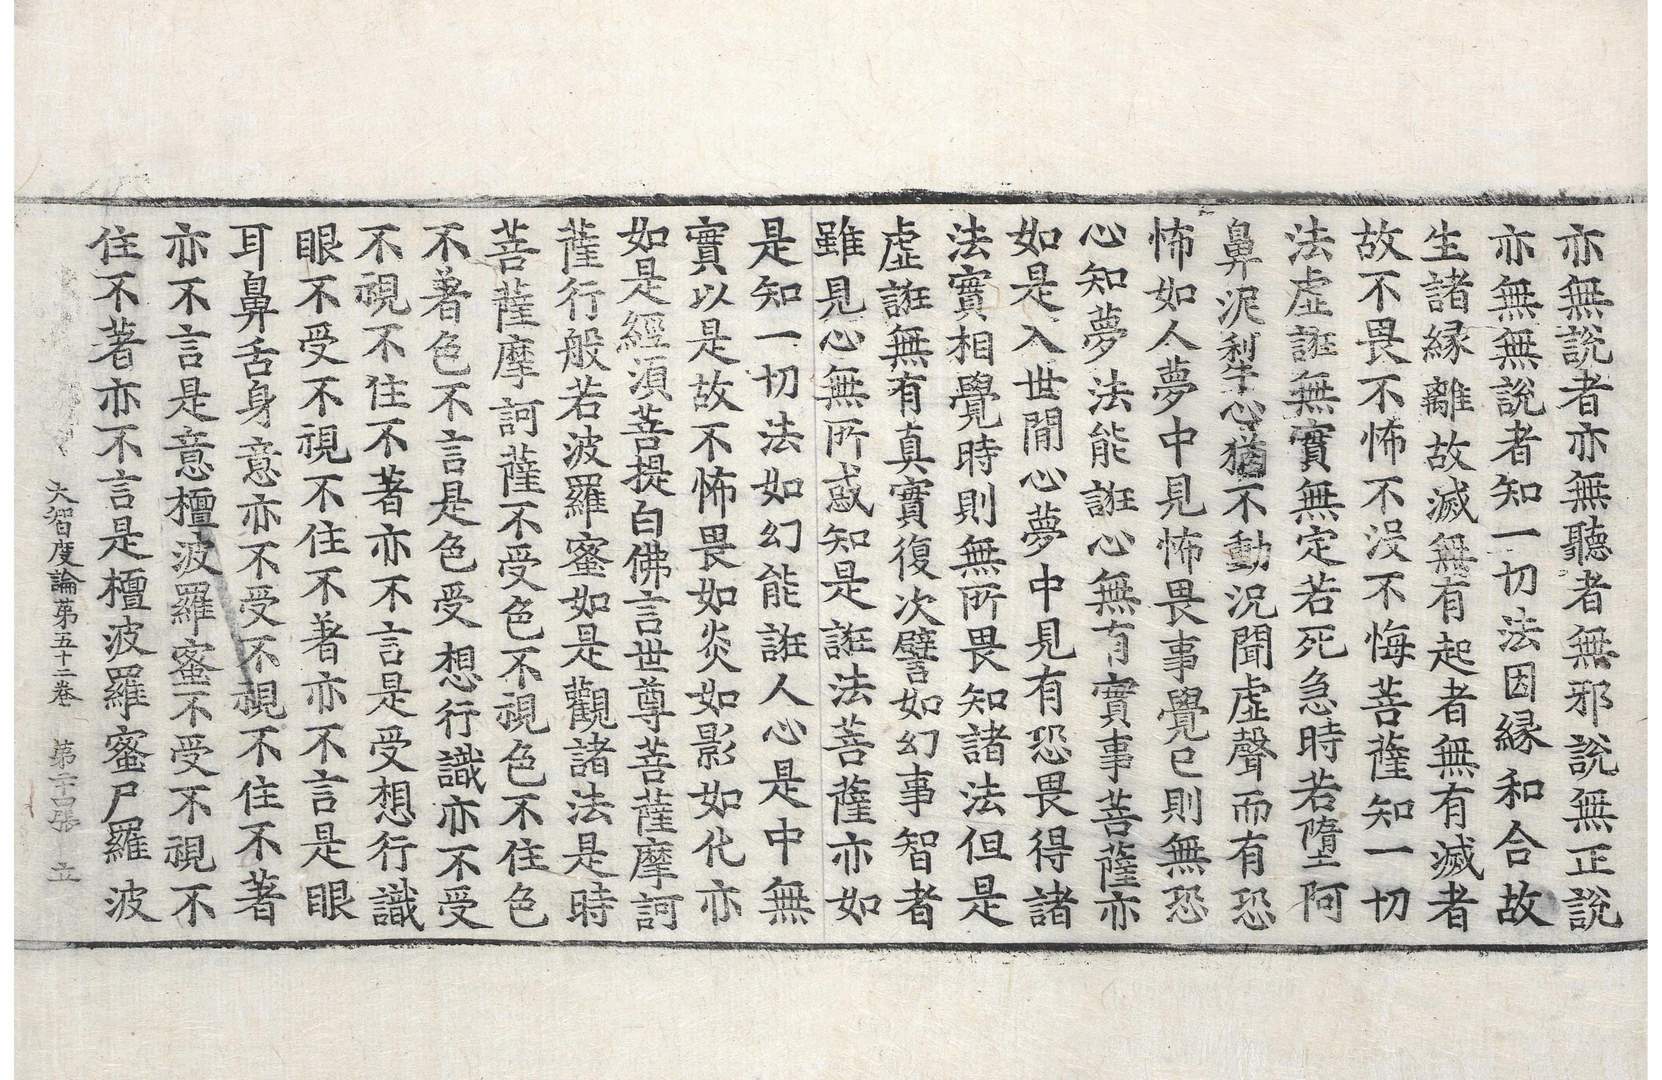 亦無說者亦無聽者無邪說無正說
亦無無說者知一切法因緣和合故
生諸緣離故滅無有起者無有滅者
故不畏不怖不没不悔菩薩知一切
法虛誑無實無定若死急時若墮阿
鼻泥犁心猶不動況聞虛聲而有恐
怖如人夢中見怖畏事覺已則無恐
心知夢法能誑心無有實事菩薩亦
如是入世閒心夢中見有恐畏得諸
法實相覺時則無所畏知諸法但是
虛誑無有真實復次譬如幻事智者
雖見心無所惑知是誑法菩薩亦如
是知一切法如幻能誑人心是中無
實以是故不怖畏如炎如影如化亦
如是經湏菩提白佛言世尊菩薩摩訶
薩行般若波羅蜜如是觀諸法是時
菩薩摩訶薩不受色不視色不住色
不著色不言是色受想行識亦不受
不視不住不著亦不言是受想行識
眼不受不視不住不著亦不言是眼
耳鼻舌身意亦不受不視不住不著
亦不言是意檀波羅蜜不受不視不
住不著亦不言是檀波羅蜜尸羅波
大智度論第五十二卷 第二十張 立